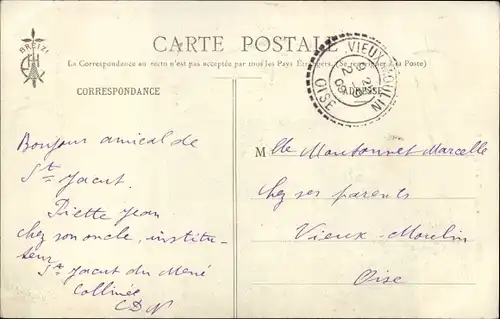 BREIZ
CARTE POSTALE
La Correspondance au recto n'est pas acceptée par tous les Pays Étrangers. (Se renseigner à la Poste)
CORRESPONDANCE
ADRESSE
VIEUX MOULIN
OISE
Bonjour amical de
St Jacut.
Piette Jean
chez son oncle, institu-
teur
St Jacut du Mené
Collinée
CDN
Mlle Montonnet Marcelle
Chez ses parents
Vieux-Moulin
Oise